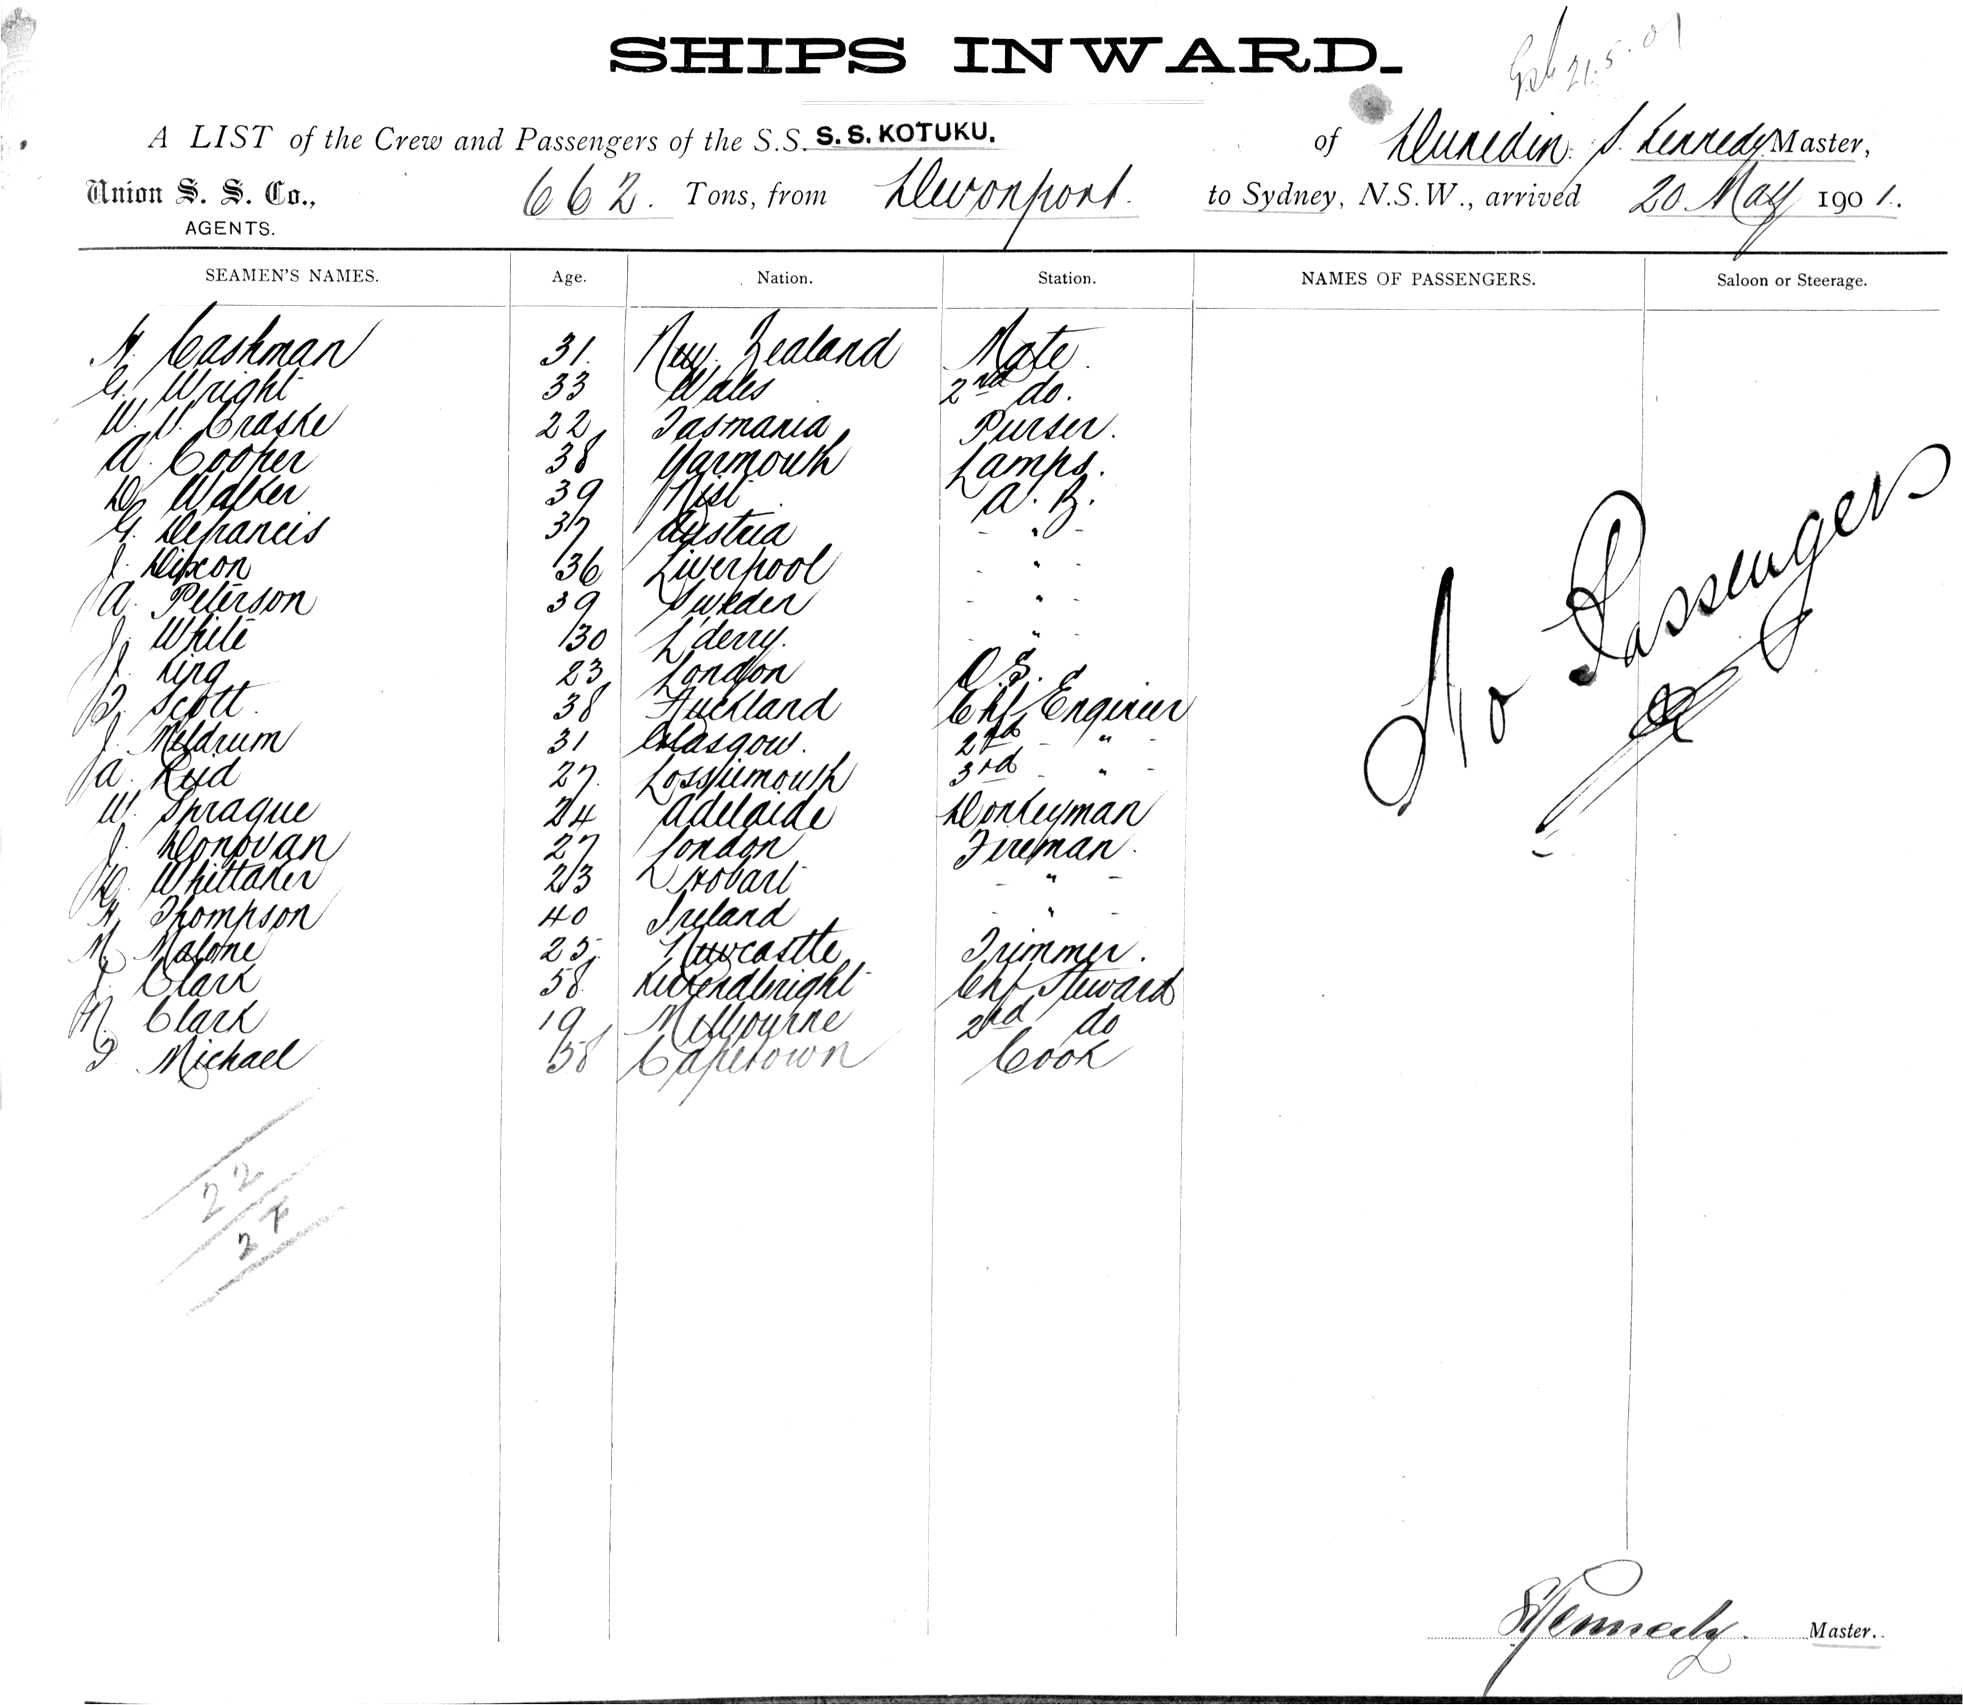 SHIPS INWARD.
21.5.01
A LIST of the Crew and Passengers of the S.S. S. S. KOTUKU. of Dunedin. S. Kennedy Master,
Union S. S. Co., 662. Tons, from Devonport. to Sydney, N.S.W., arrived 20 May 1901.
AGENTS.
SEAMEN'S NAMES. Age. Nation. Station. NAMES OF PASSENGERS. Saloon or Steerage.
Cashman 31. New Zealand Mate.
G. Wright 33 Wales 2nd do.
W. V. Craske 22 Tasmania Purser.
A. Cooper 38 Yarmouth Lamps.
D. Walker 39 A. B.
G. Defrancis 37 Austria - " -
J. Dixon 36 Liverpool - " -
A. Peterson 39 Sweden - " -
J. White 30 L'derry. - " -
J. King 23 London O. S.
Scott. 38 Auckland Chf Engineer
J. Meldrum 31 Glasgow. 2nd - " -
A. Reid 27. Lossiemouth 3rd - " -
W. Sprague 24 Adelaide Donkeyman
J. Donovan 27 London Fireman.
D. Whittaker 23 Hobart - " -
H. Thompson 40 Ireland - " -
M. Malone 25. Newcastle Trimmer.
J. Clark 58. Kirkendbright Chf Steward
N. Clark 19 Melbourne 2nd do
Michael 58 Capetown Cook
No Passengers
22
27
Kennedy. Master.